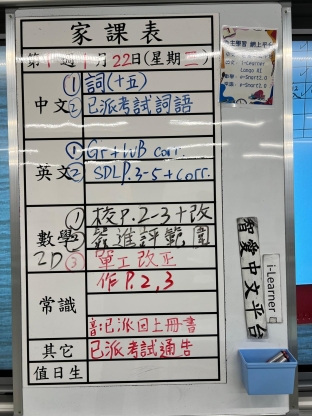 家課表
月22日(星期三)
中文
①詞(十五)
②已派考試詞語
英文
①Gr+WB corr.
②SDL P.3-5+corr.
數學
2D
① P.2-3+改
②進評範圍
③單工改正
常識
作P.2,3
已派回上冊書
其它
已派考試通告
值日生
自主學習 網上平台
i-Learner
智愛中文平台
i-Learner